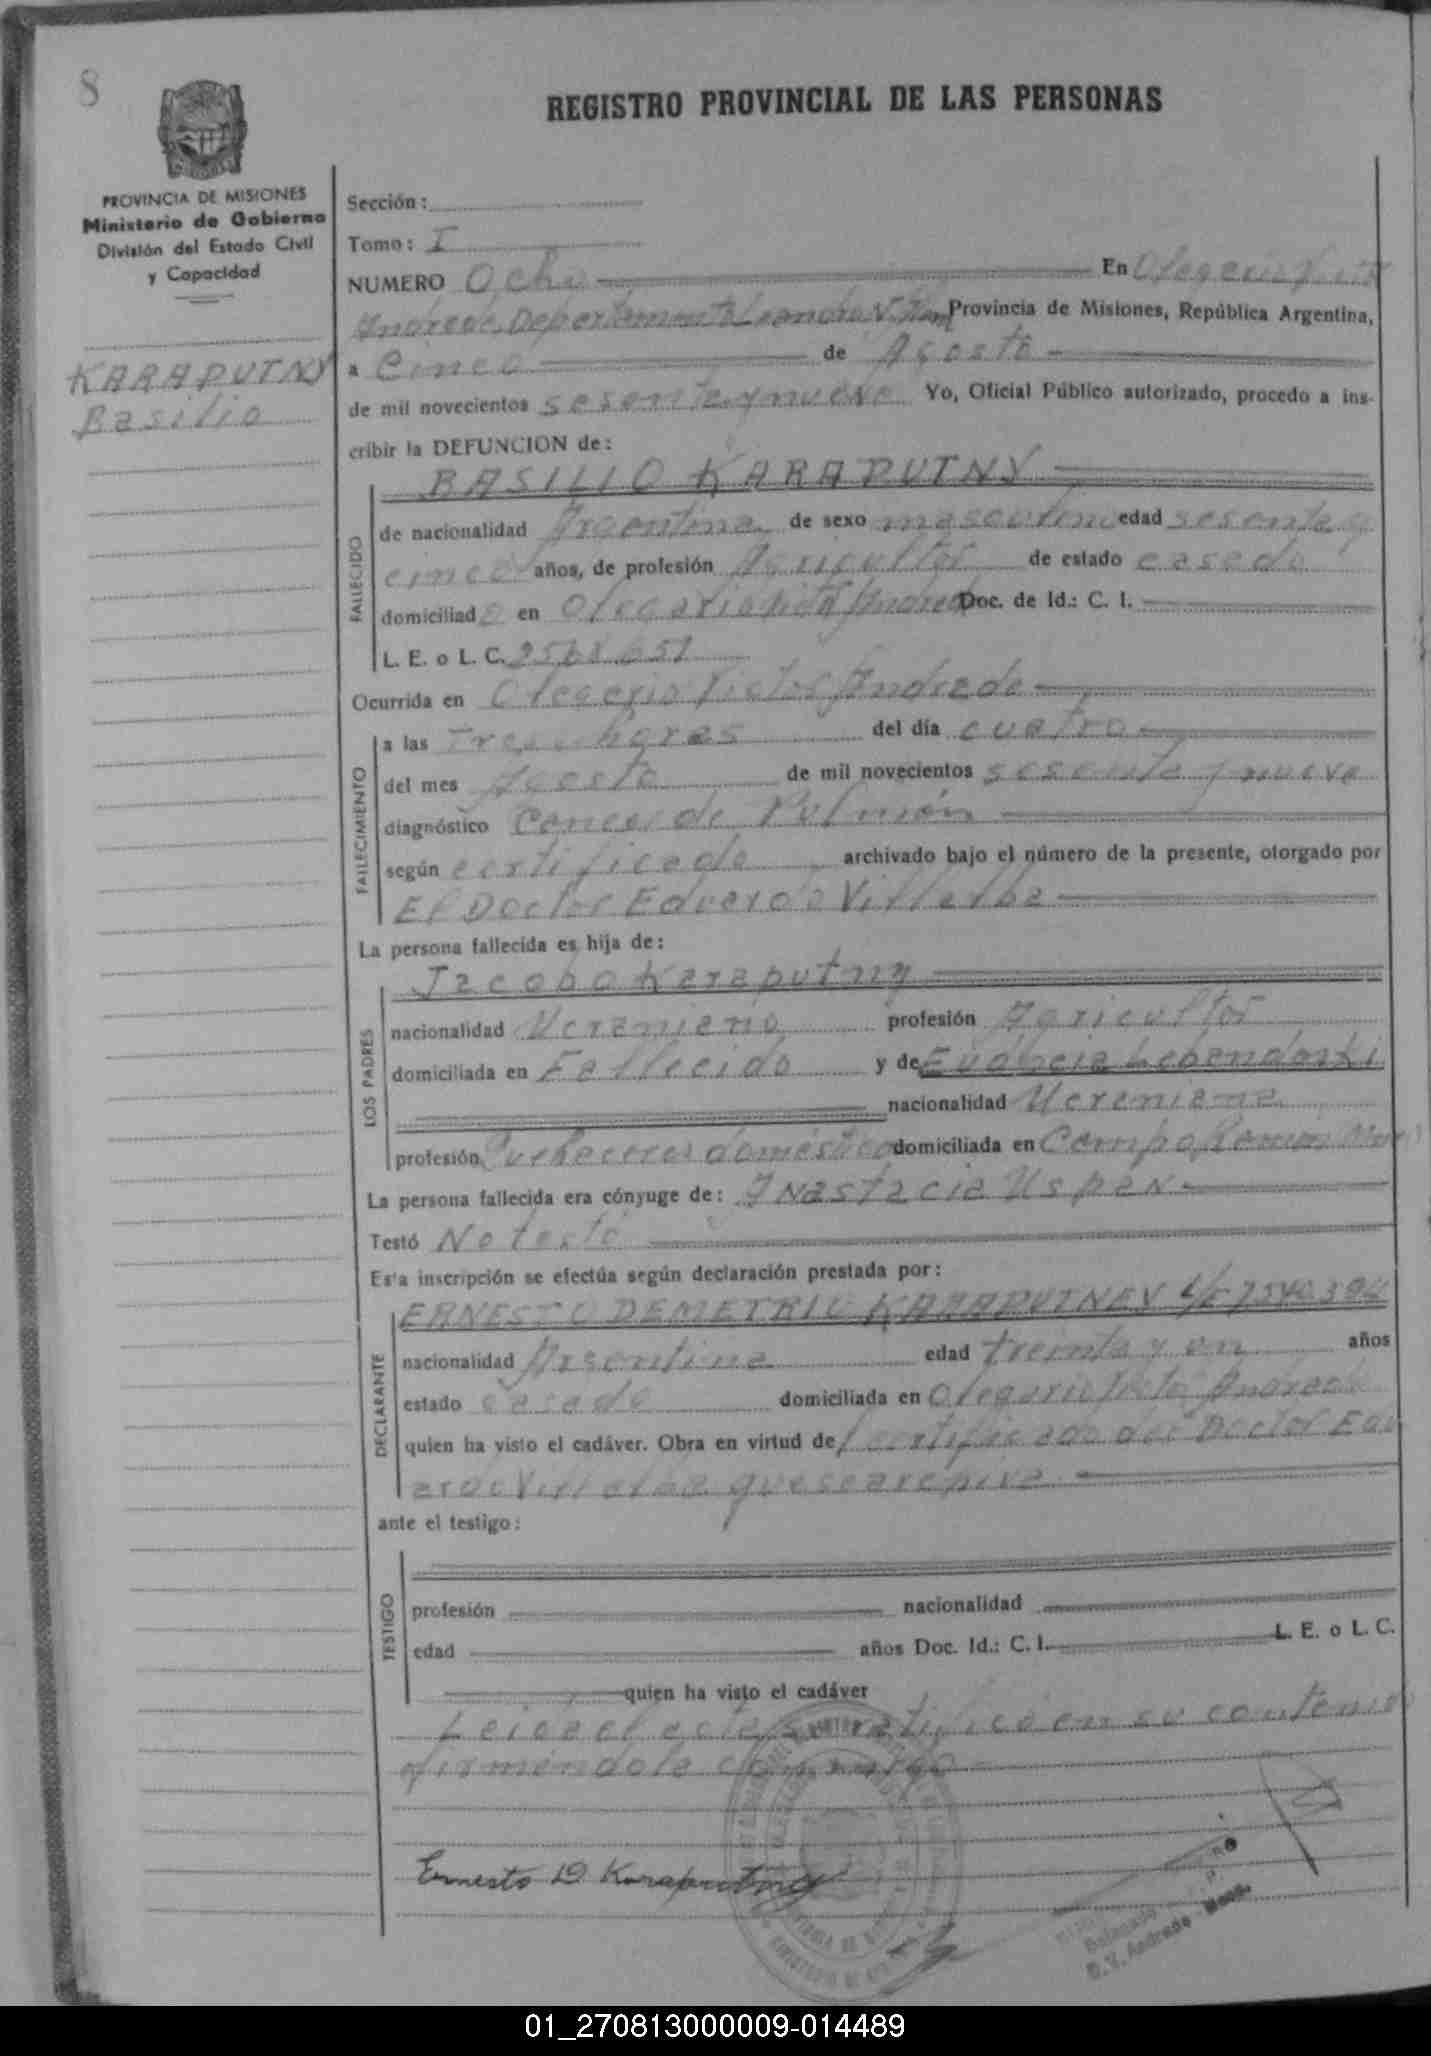 8
REGISTRO PROVINCIAL DE LAS PERSONAS
PROVINCIA DE MISIONES
Ministerio de Gobierno
División del Estado Civil
y Capacidad
KARAPUTNY
Basilio
Sección:
Tomo: I
NUMERO Ocho En Olegario Victor
Andrade, Departamento Leandro N. Alem Provincia de Misiones, República Argentina,
a Cinco de Agosto
de mil novecientos sesenta y nueve Yo, Oficial Público autorizado, procedo a ins-
cribir la DEFUNCION de:
BASILIO KARAPUTNY
FALLECIDO
de nacionalidad Argentina de sexo masculino edad sesenta y
cinco años, de profesión Agricultor de estado casado
domiciliado en Olegario Victor Andrade Doc. de Id.: C. I.
L. E. o L. C.
Ocurrida en Olegario Victor Andrade
FALLECIMIENTO
a las Tres horas del día cuatro
del mes Agosto de mil novecientos sesenta y nueve
diagnóstico Cancer de Pulmón
según certificado archivado bajo el número de la presente, otorgado por
El Doctor Eduardo Villalba
La persona fallecida es hija de:
LOS PADRES
Jacobo Karaputny
nacionalidad Ucraniano profesión Agricultor
domiciliada en Fallecido y de Eudocia
nacionalidad Ucraniana
profesión Quehaceres domésticos domiciliada en Campo Ramon
La persona fallecida era cónyuge de: Anastacia Uspen
Testó No testó
Esta inscripción se efectúa según declaración prestada por:
DECLARANTE
ERNESTO DEMETRIO KARAPUTNEY L/E 7540394
nacionalidad Argentina edad treinta y un años
estado casado domiciliada en Olegario Victor Andrade
quien ha visto el cadáver. Obra en virtud del certificado del Doctor Edu
ardo Villalba que se archiva
ante el testigo:
TESTIGO
profesión nacionalidad
edad años Doc. Id.: C. I. L. E. o L. C.
quien ha visto el cadáver
Leida el acta se ratificó en su contenido
firmándola conmigo
Ernesto D Karaputny
O. V. Andrade - Mnes.
01_270813000009-014489